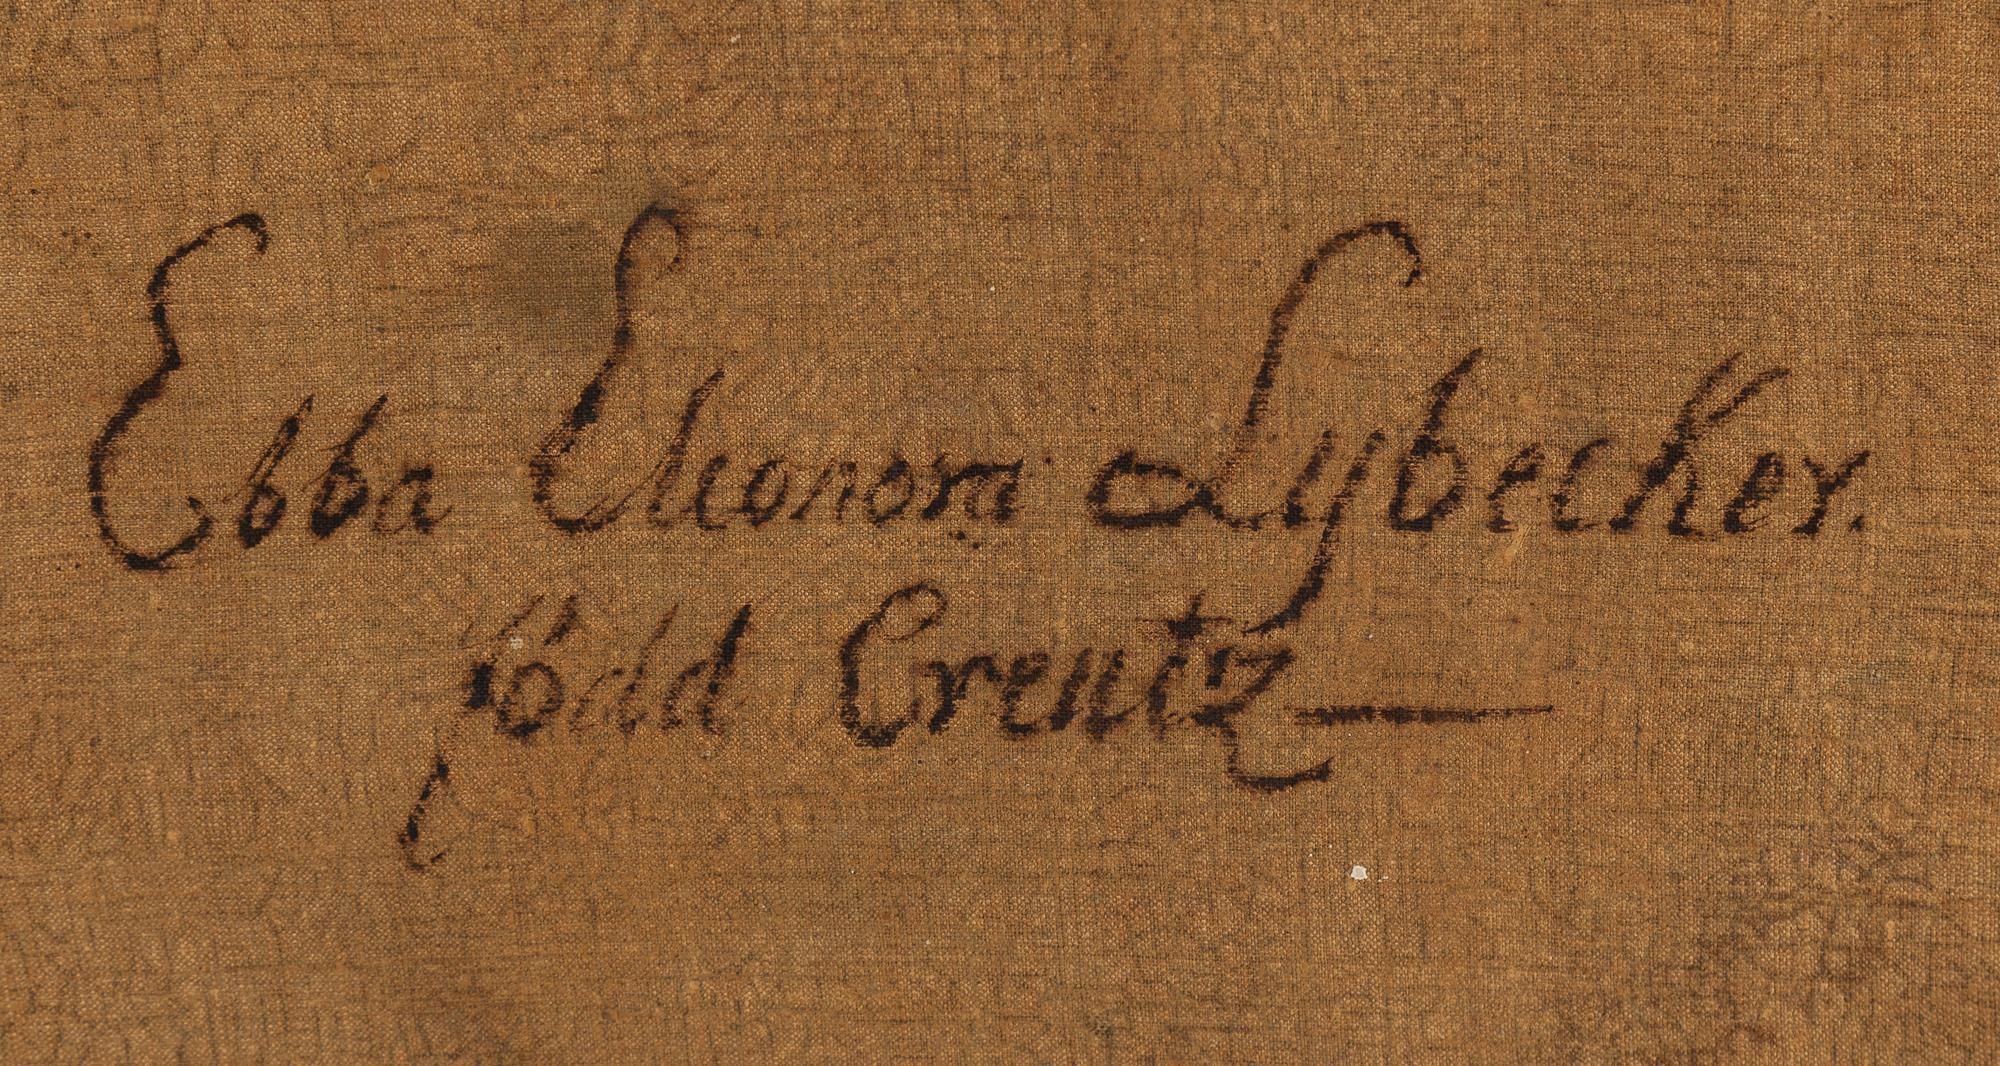 Ebba Eleonora Lybecker.
född Creutz